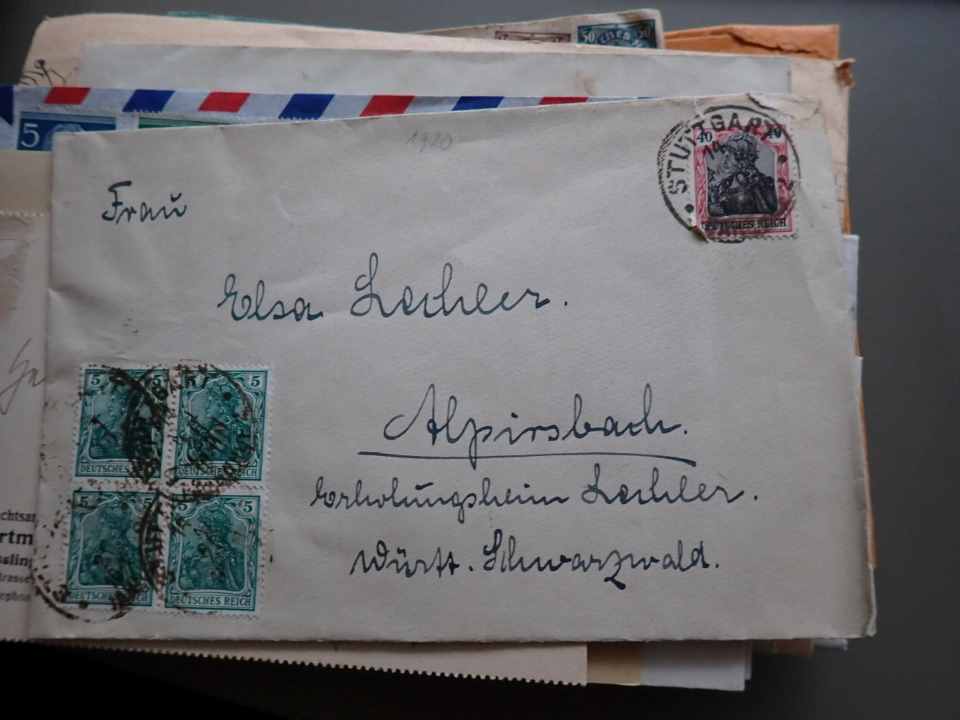 50
5
1920
STUTTGART
40 40
DEUTSCHES REICH
Frau
Elsa Lechler.
Alpirsbach.
Erholungsheim Lechler.
Württ. Schwarzwald.
5 5
DEUTSCHES REICH
5
DEUTSCHES REICH
5 5
DEUTSCHES REICH
5 5
DEUTSCHES REICH